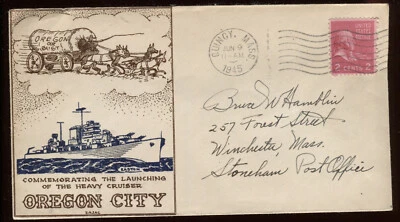 OREGON
OR
BUST
COMMEMORATING THE LAUNCHING
OF THE HEAVY CRUISER
OREGON CITY
QUINCY, MASS.
JUN 9
1945
UNITED STATES
POSTAGE
2 CENTS 2
Bruce W Hamblin
257 Forest Street
Winchester, Mass.
Stoneham Post Office